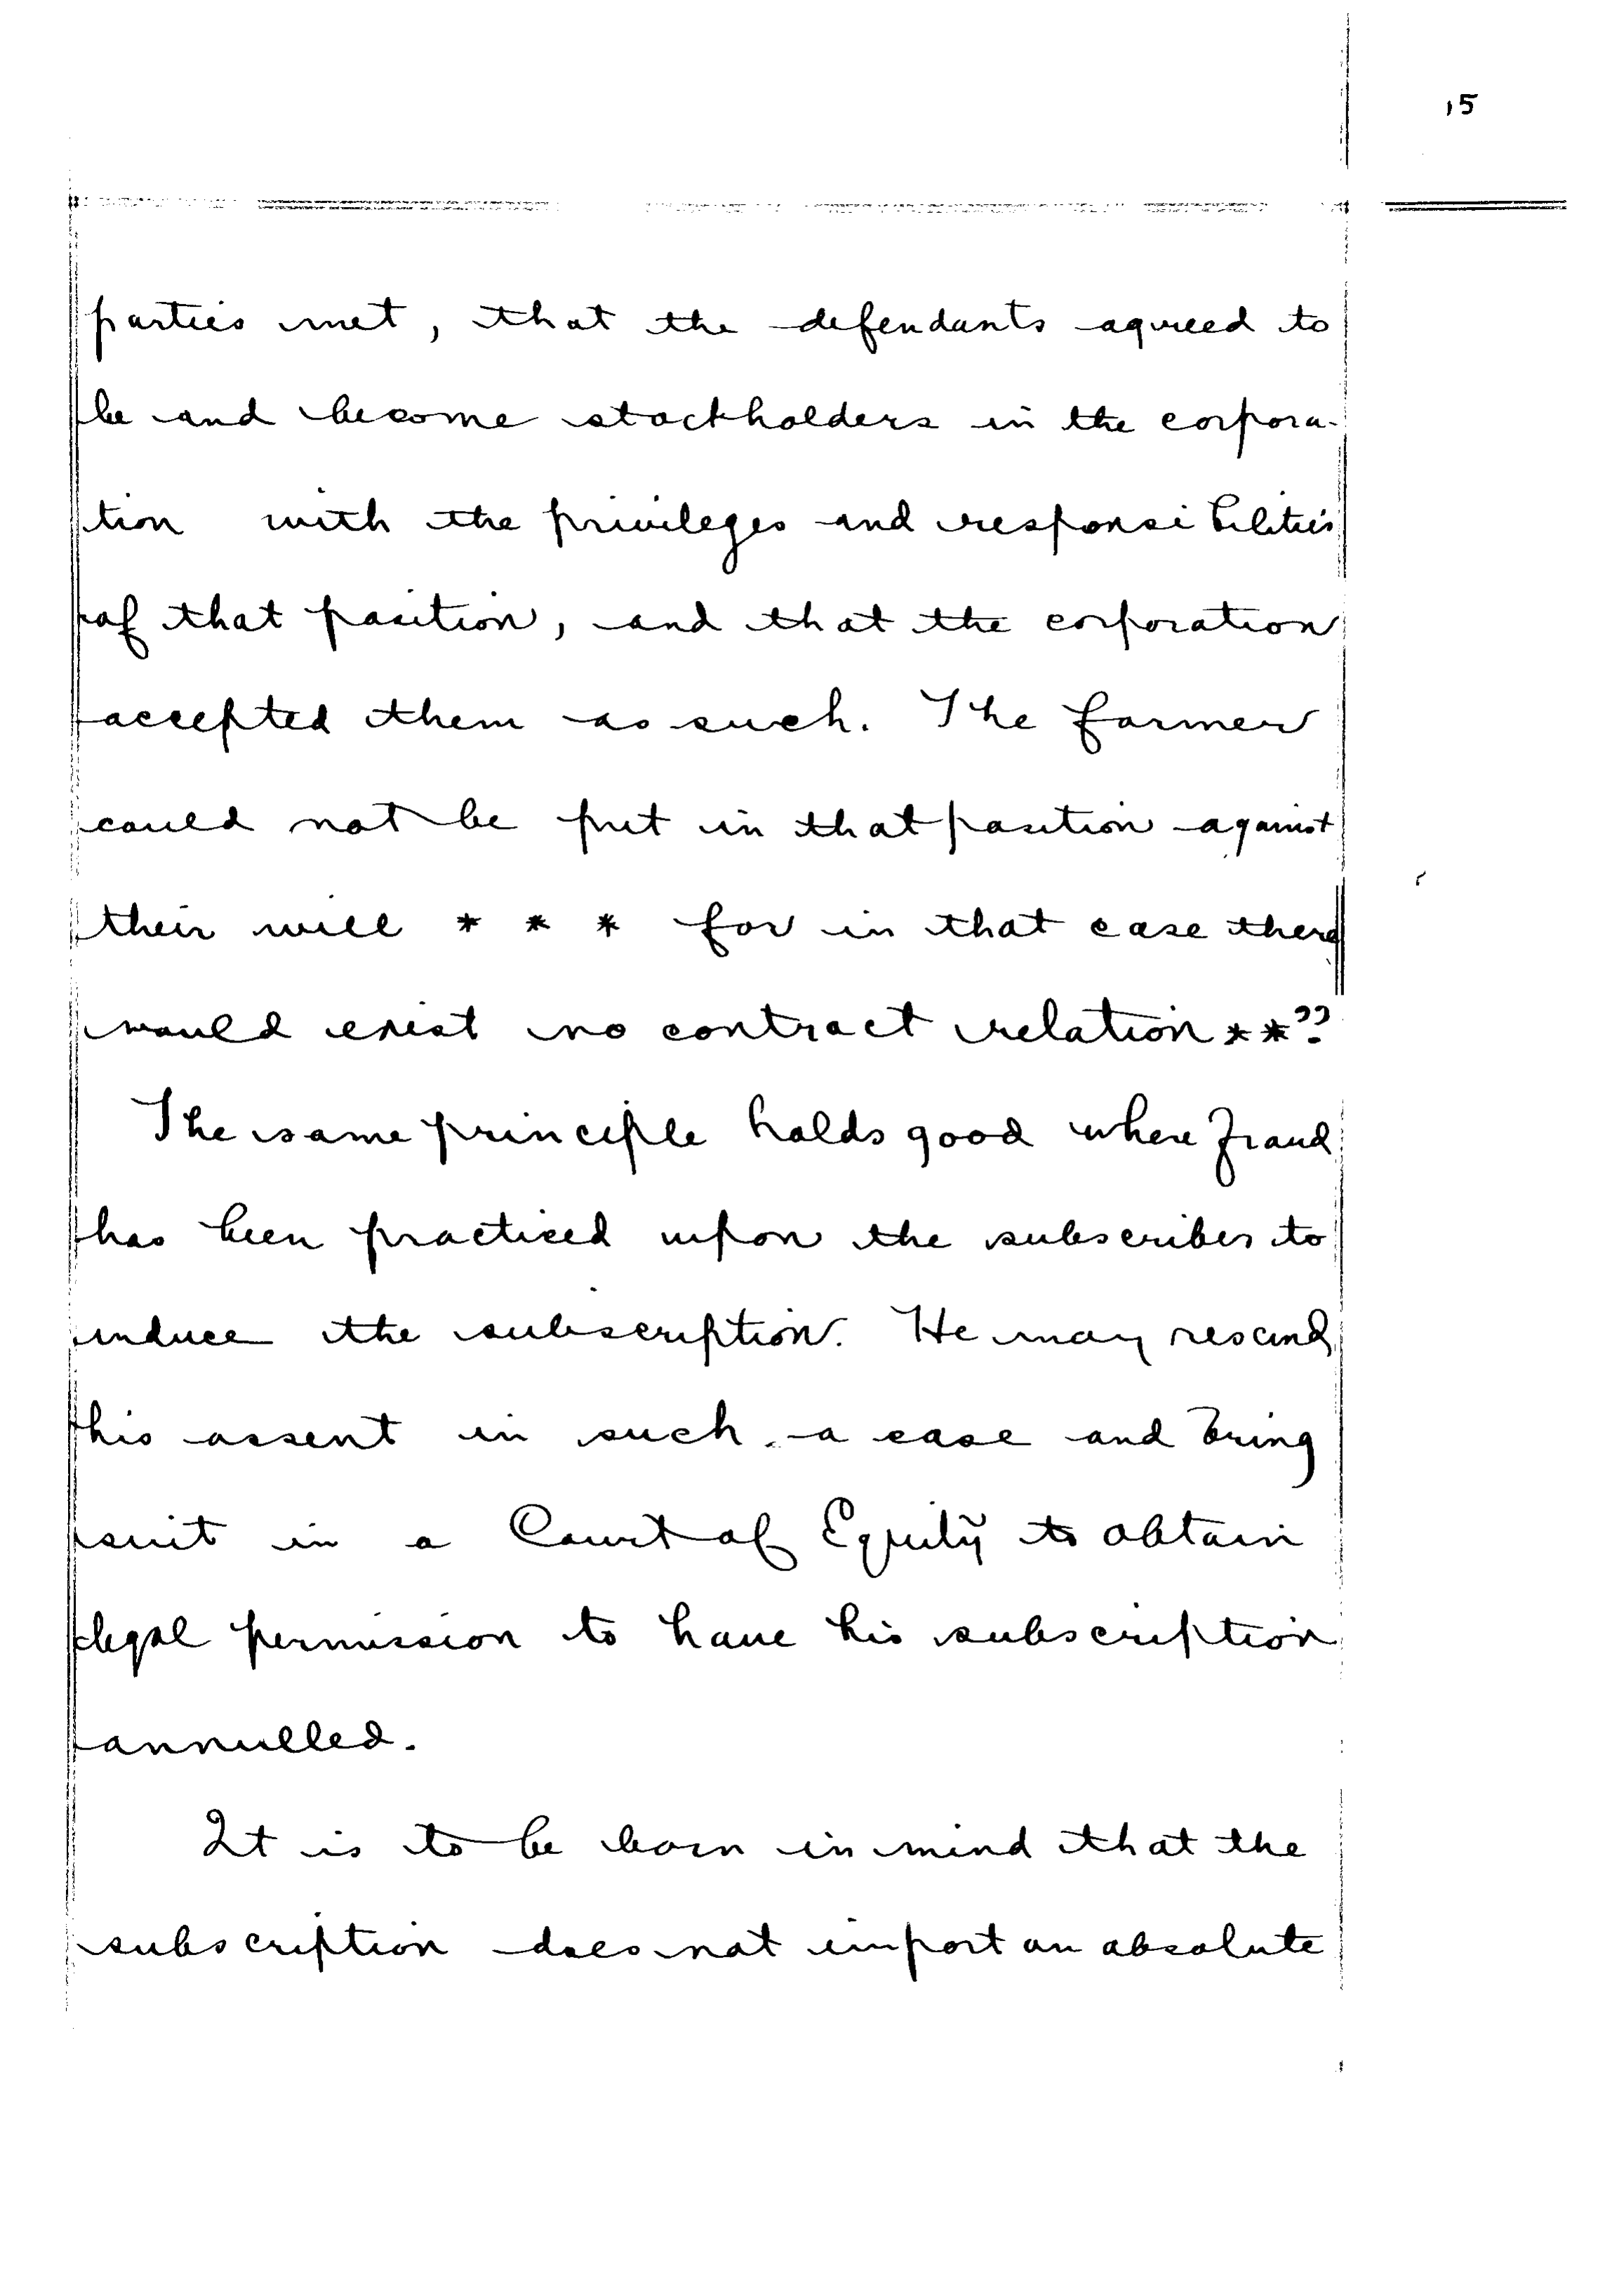 15
parties met, that the defendants agreed to
be and become stockholders in the corpora-
tion with the privileges and responsibilities
of that position, and that the corporation
accepted them as such. The former
could not be put in that position against
their will * * * for in that case there
would exist no contract relation **".
The same principle holds good where fraud
has been practiced upon the subscriber to
induce the subscription. He may rescind
his assent in such a case and bring
suit in a Court of Equity to obtain
legal permission to have his subscription
annulled.
It is to be born in mind that the
subscription does not import an absolute